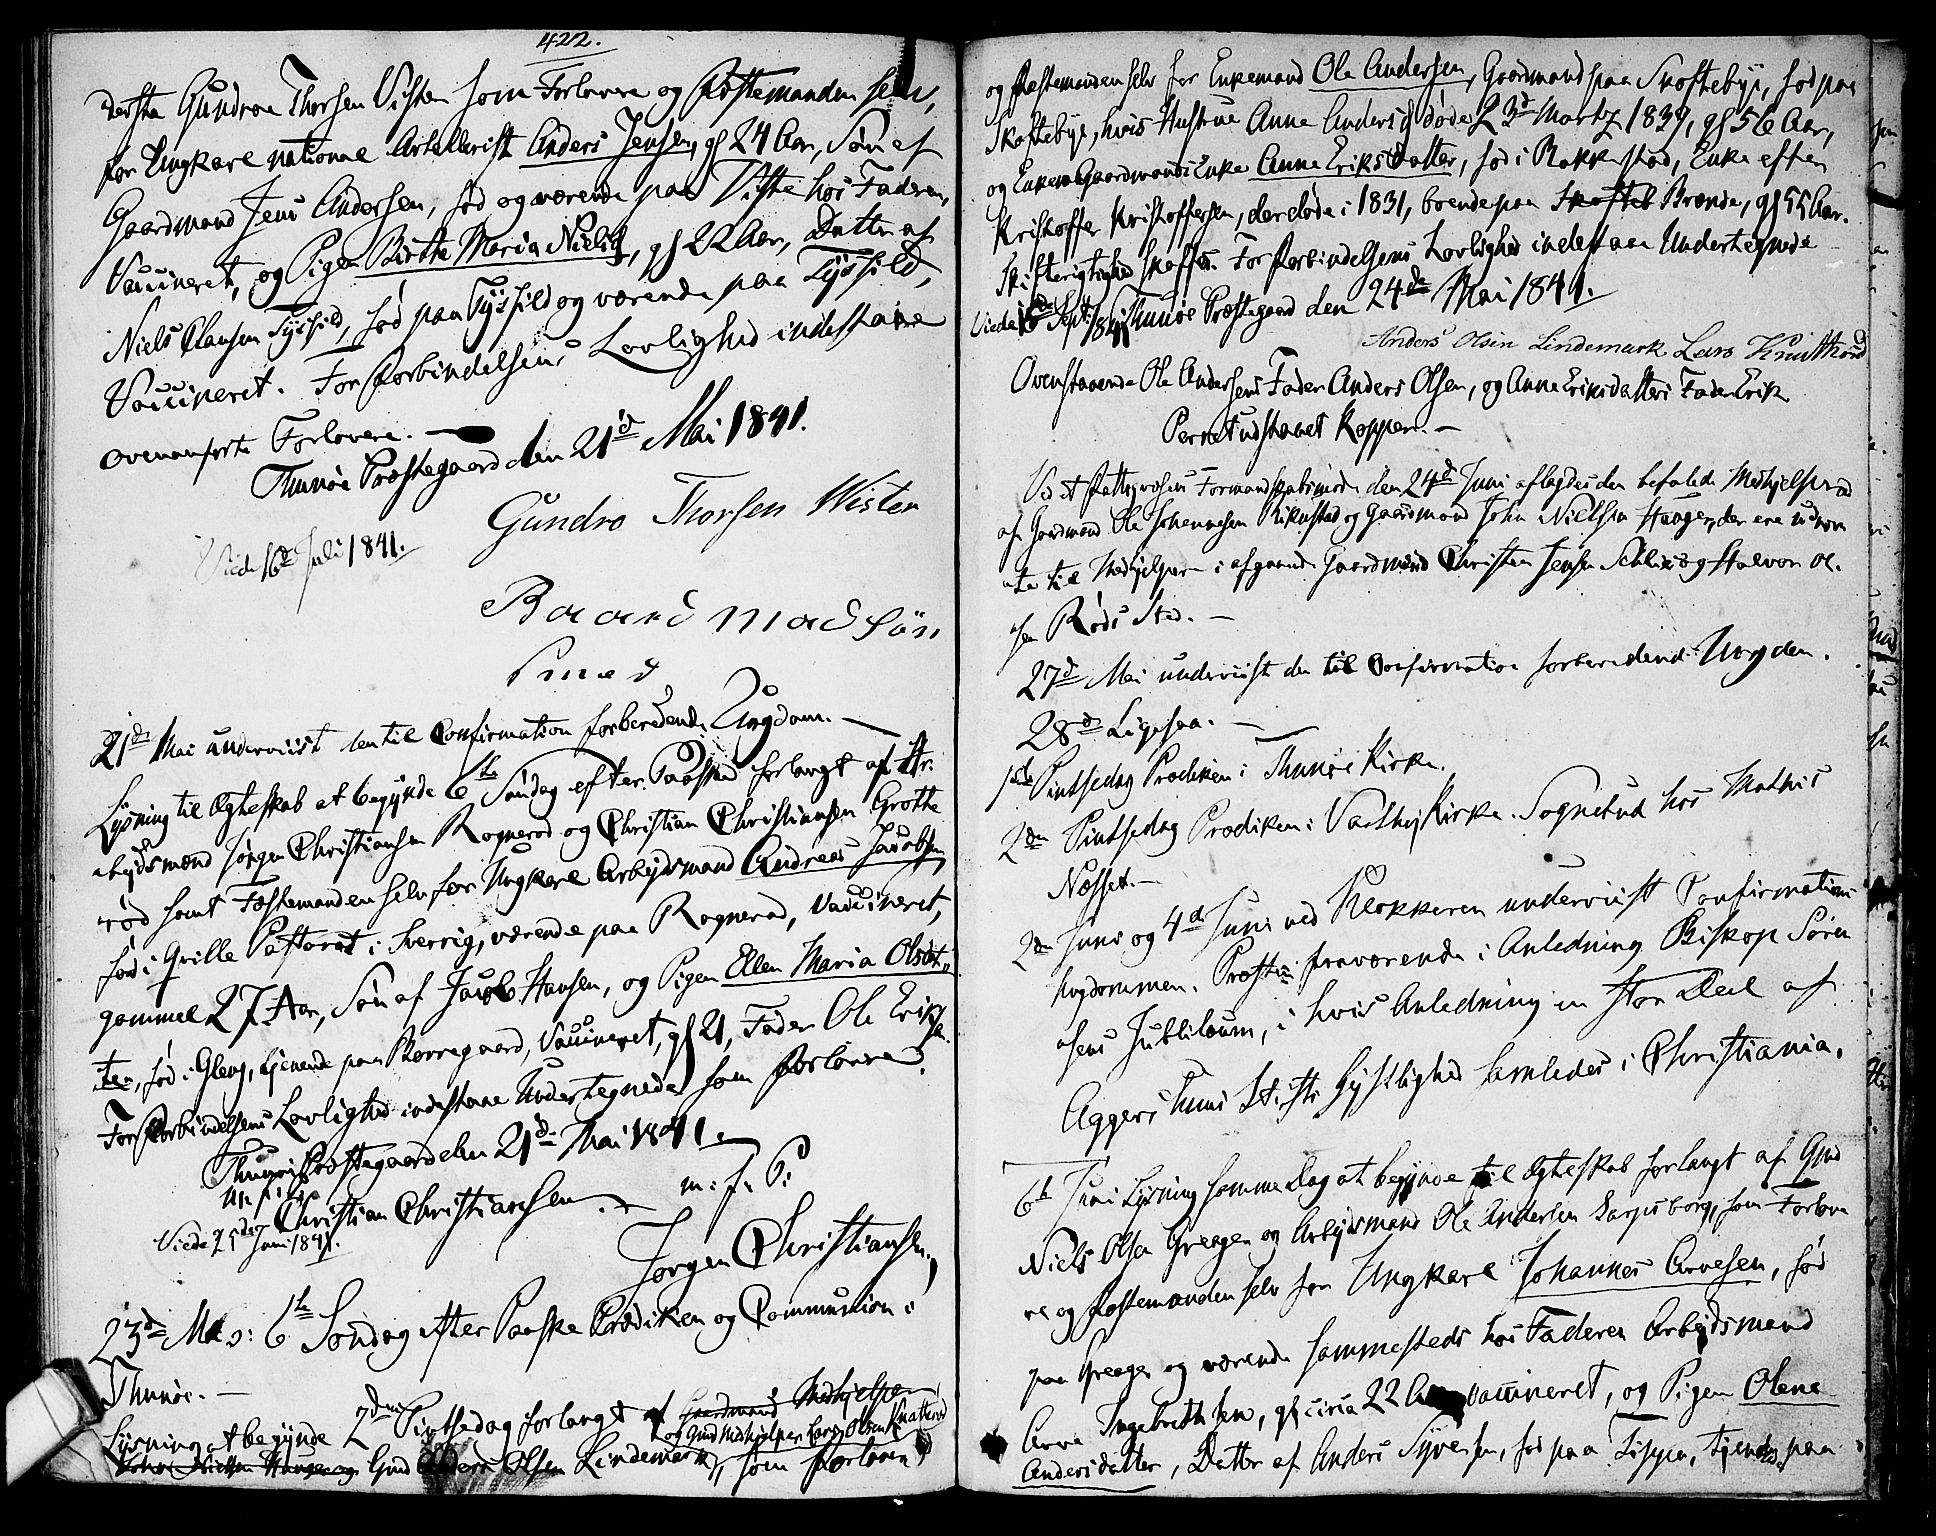 422.
Gundroe Thorsen Visten som Forlovere og Fæstemanden selv,
for Ungkarl nationne Artellerist Anders Jensen, gl 24 Aar, Søn af
Gaardmand Jens Andersen, fød og værende paa Viste hos Faderen,
Vaccineret, og Pigen Birthe Maria Nielsd, gl 22 Aar, Datter af
Niels Clausen Tysfild, fød paa Tysfild og værende paa Tysfild,
Vaccineret. For Forbindelsens Lovlighed indestaae
ovenanførte Forlovere.
Thunøe Præstegaard den 21d Mai 1841.
Gundro Thorsen Wisten
Viede 16d Juli 1841.
Baard Madsøn
21d Mai underviist den til Confirmation forberedende Ungdom.
Lysning til Ægteskab at begynde 6te Søndag efter Paaske forlangt af Ar-
beidsmand Jørgen Christiansen Rognerød og Christian Christiansen Grotte
rød samt Fæstemanden selv for Ungkarl Arbeidsmand Andreas Jacobsen,
fød i Qville Pastorat i Sverrig, værende paa Rognerød, vaccineret,
gammel 27 Aar, Søn af Jacob Hansen, og Pigen Ellen Maria Olsdat-
ter, fød i Gleng, tjenende paa Borregaard, Vaccineret, gl 21, Fader Ole Eriksen.
For Forbindelsens Lovlighed indestaae Undertegnede som Forlovere.
Thunøe Præstegaard den 21d Mai 1841.
m: f: P:
Christian Christiansen.
Viede 25de Juni 1841.
Jørgen Christiansen,
23d Mai: 6te Søndag efter Paaske Prædiken og Communion i
Thunøe.
Lysning at begynde 2den Pintsedag forlangt af Gaardmand Medhjelper
og Gmd Medhjelper Lars Olsen Knatterød
John Nielsen Hauger og Gmd Anders Olsen Lindemark, som Forlovere
og Fæstemanden selv for Enkemand Ole Andersen, Gaardmand paa Skoftebye, fød paa
Skoftebye, hvis Hustrue Anne Andersd døde 23d Martz 1839, gl 56 Aar,
og Enken Gaardmands Enke Anne Eriksdatter, fød i Rakkestad, Enke efter
Kristoffer Kristoffersen, der døde i 1831, boende paa Skofteb Brende, gl 55 Aar.
Skifterigtighed skaffes. For Forbindelsens Lovlighed indestaae Undertegnede
Viede Sept 1841 Thunøe Præstegaard den 24de Mai 1841.
Anders Olsen Lindemark Lars Knatterød
Ovenstaaende Ole Andersens Fader Anders Olsen, og Anne Eriksdatters Fader Erik
udstaaet Kopper.
Ved et Formandskabsmøde den 24d Juni aflagdes den befalede Medhjelpered
af Gaardmand Ole Johannesen og Gaardmand John Nielsen Hauger, der ere udnævn
te til Medhjelpere i afgaaende Gaardmænd Christen Jensen og Halvor Ol-
sen Røds Sted.
27d Mai underviist den til Confirmation forberedende Ungdom.
28d Ligesaa.
1ste Pintsedag Prædiken i Thunøe Kirke.
2den Pintsedag Prædiken i Varteig Kirke. Sognebud hos Mathis
Næsset.
2den Juni og 4d Juni ved Klokkeren underviist Confirmations-
ungdommen. Præsten fraværende i Anledning Biskop Søren
sens Jubilæum, i hvis Anledning en stor Deel af
Aggershuus Stifts Geistlighed samledes i Christiania.
6te Juni Lysning samme Dag at begynde til Ægteskab forlangt af Gmd
Niels Olsen Greager og Arbeidsmand Ole Andersen Sarpsborg, som Forlove
re og Fæstemanden selv for Ungkarl Johannes Arvesen, fød
paa Greager og værende sammesteds hos Faderen Arbeidsmand
Arve Ingebrethsen, gl circa 22 Aar vaccineret, og Pigen Olene
Andersdatter, Datter af Anders Syversen, fød paa Tippen, tjenende paa